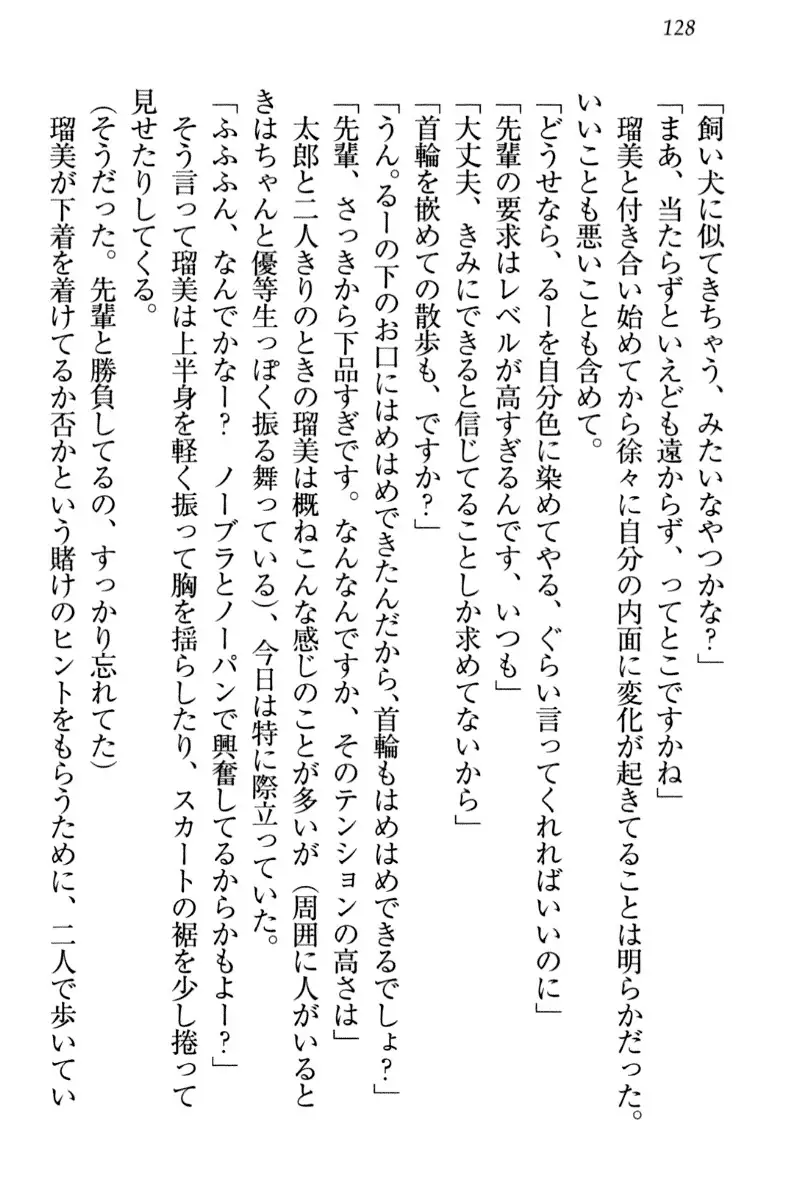 128
「飼い犬に似てきちゃう、みたいなやつかな？」
「まあ、当たらずといえども遠からず、ってとこですかね」
瑠美と付き合い始めてから徐々に自分の内面に変化が起きてることは明らかだった。
いいことも悪いことも含めて。
「どうせなら、るーを自分色に染めてやる、ぐらい言ってくれればいいのに」
「先輩の要求はレベルが高すぎるんです、いつも」
「大丈夫、きみにできると信じてることしか求めてないから」
「首輪を嵌めての散歩も、ですか？」
「うん。るーの下のお口にはめはめできたんだから、首輪もはめはめできるでしょ？」
「先輩、さっきから下品すぎです。なんなんですか、そのテンションの高さは」
太郎と二人きりのときの瑠美は概ねこんな感じのことが多いが（周囲に人がいると
きはちゃんと優等生っぽく振る舞っている）、今日は特に際立っていた。
「ふふふん、なんでかなー？　ノーブラとノーパンで興奮してるからかもよー？」
そう言って瑠美は上半身を軽く振って胸を揺らしたり、スカートの裾を少し捲って
見せたりしてくる。
（そうだった。先輩と勝負してるの、すっかり忘れてた）
瑠美が下着を着けてるか否かという賭けのヒントをもらうために、二人で歩いてい